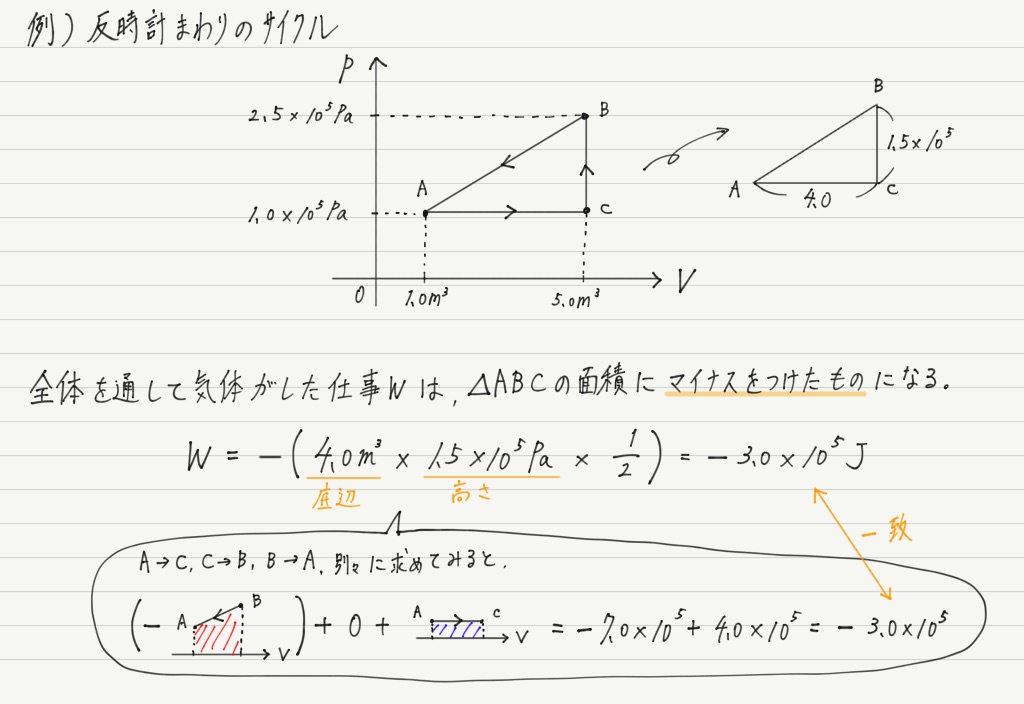 例）反時計まわりのサイクル
P
2.5×10⁵Pa
B
A
1.0×10⁵Pa
C
0
1.0m³
5.0m³
V
B
1.5×10⁵
A
4.0
C
全体を通して気体がした仕事Wは, △ABCの面積にマイナスをつけたものになる.
W = −(4.0m³ × 1.5×10⁵Pa × 1/2) = −3.0×10⁵J
底辺 高さ
一致
A→C, C→B, B→A, 別々に求めてみると.
(− A B V) + 0 + A C V = −7.0×10⁵ + 4.0×10⁵ = −3.0×10⁵